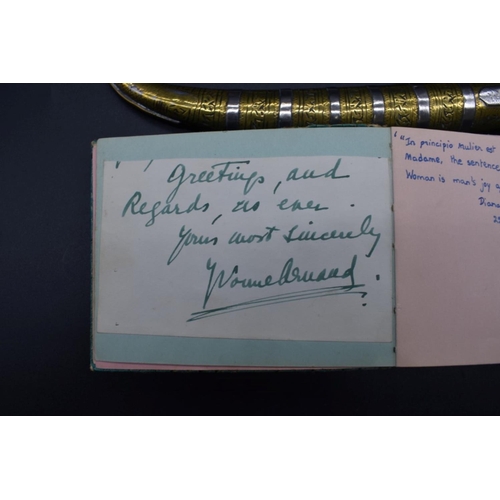 Greetings, and
Regards, as ever.
Yours most sincerely
Yvonne Arnaud.
"In principio Mulier est
Madame, the sentence
Woman is man's joy
Diana